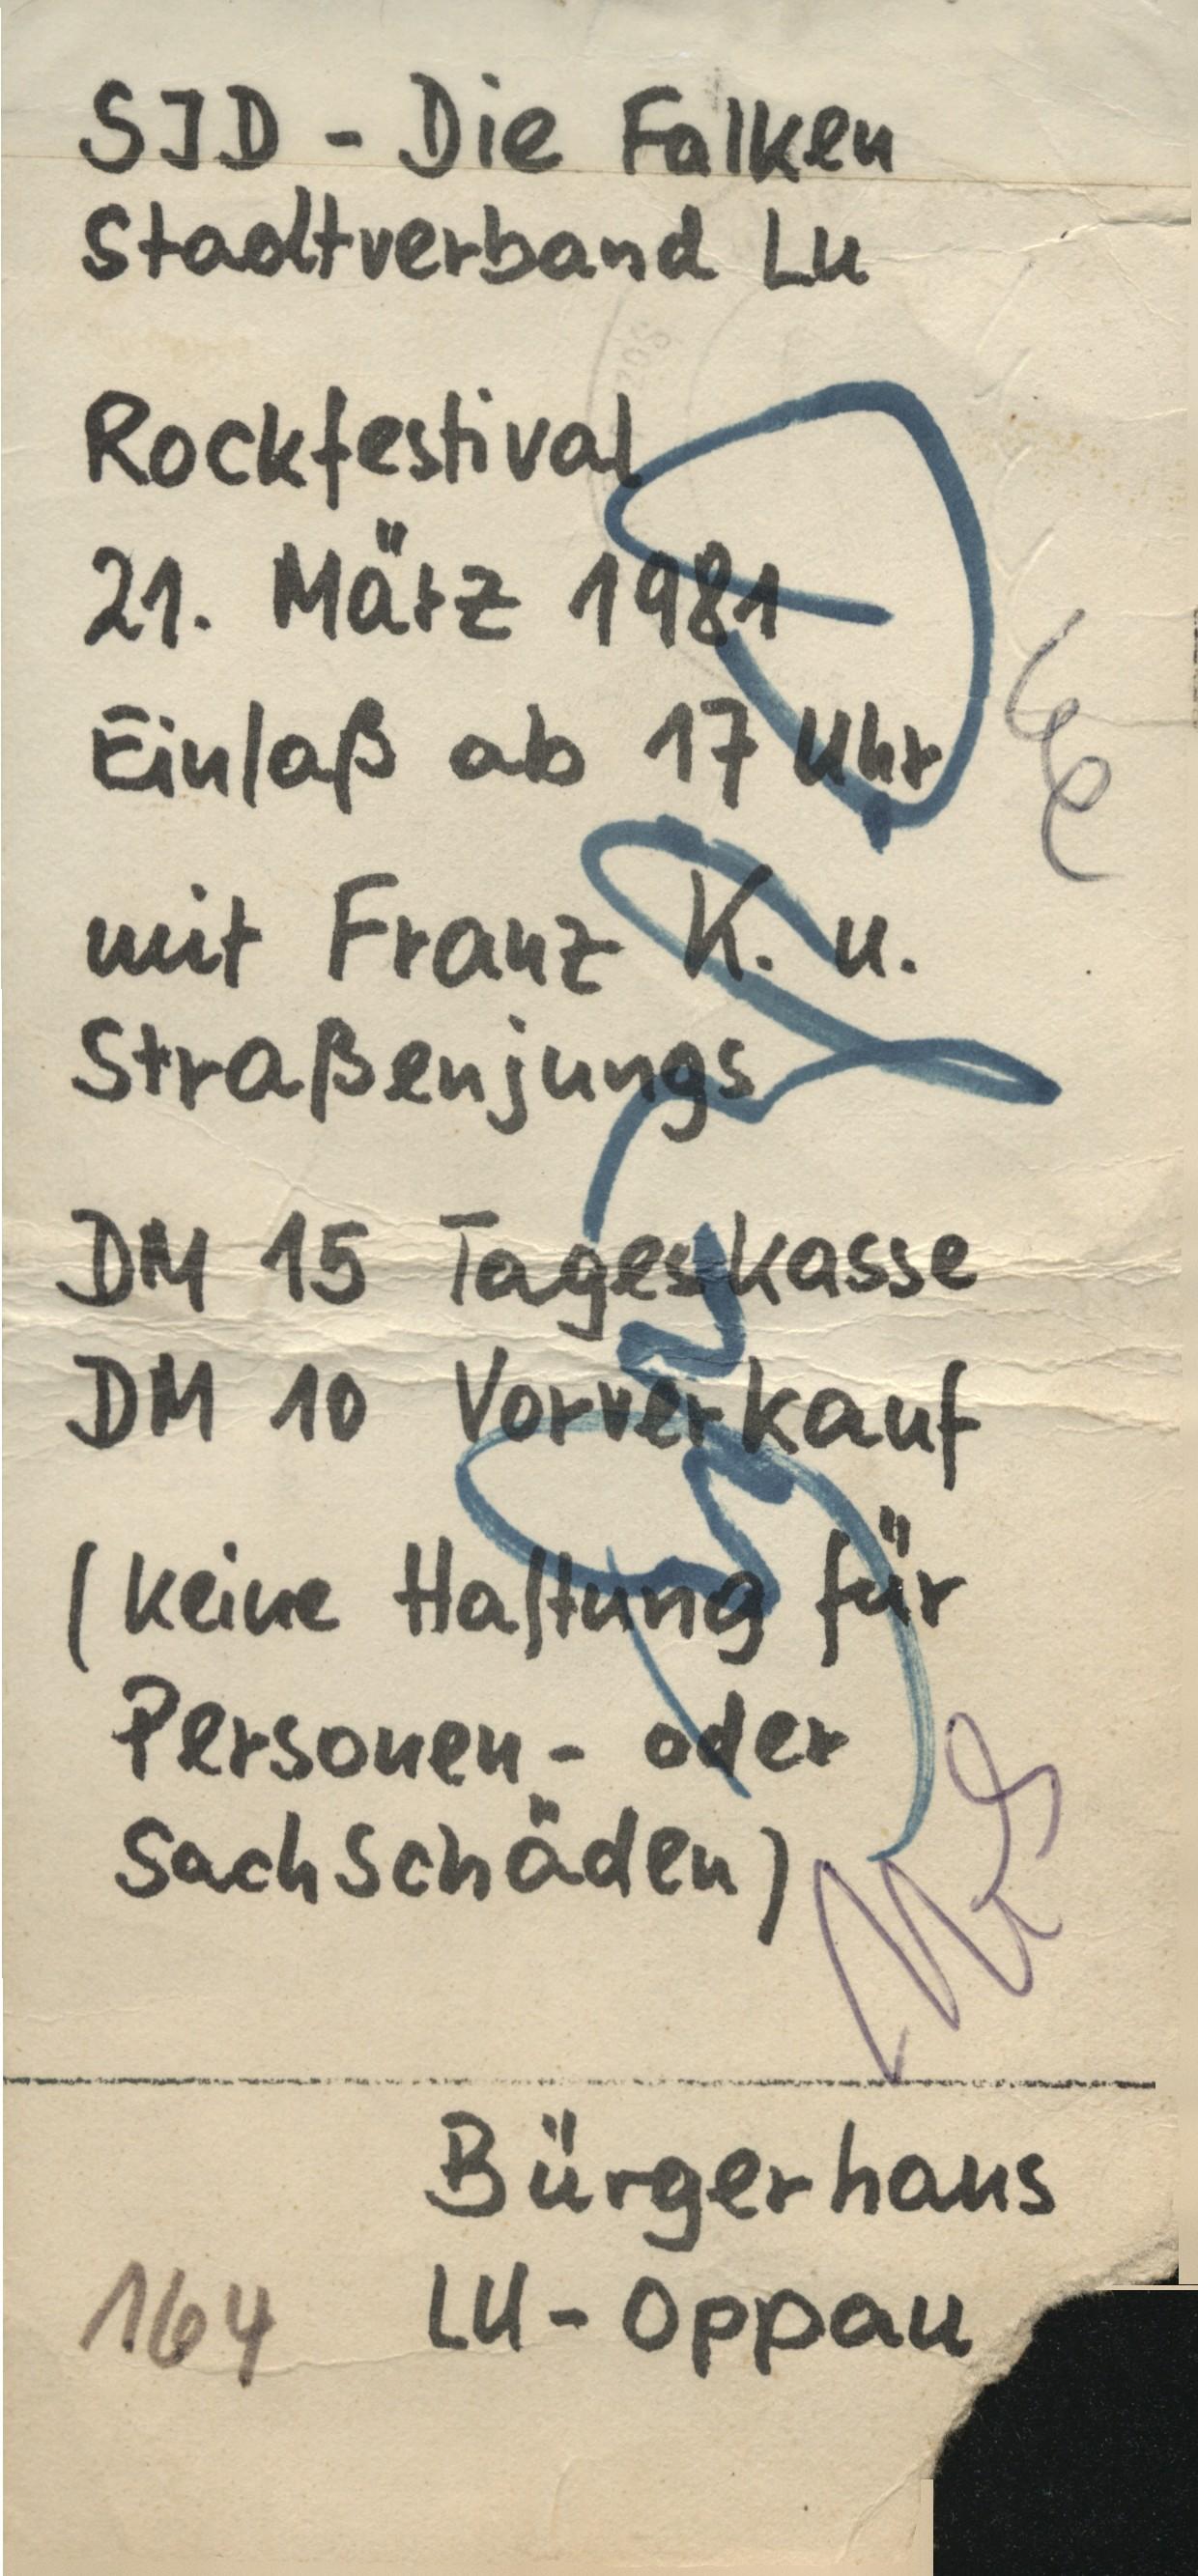 SJD - Die Falken
Stadtverband Lu
Rockfestival
21. März 1981
Einlaß ab 17 Uhr
mit Franz K. u.
Straßenjungs
DM 15 Tageskasse
DM 10 Vorverkauf
(keine Haftung für
Personen- oder
Sachschäden)
Bürgerhaus
164 LU-Oppau